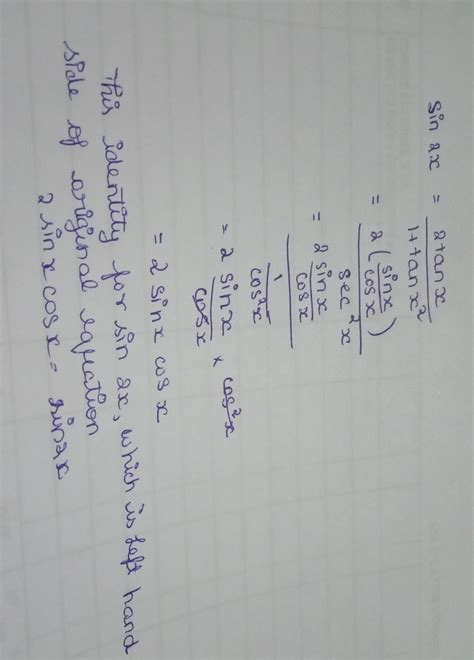 sin 2x = 2tan x / 1+tan x²
= 2 (sin x / cos x) / sec² x
= 2 sin x / cos x / 1 / cos² x
= 2 sin x / cos x × cos² x
= 2 sin x cos x
This identity for sin 2x, which is left hand
side of original equation
2 sin x cos x = sin 2x